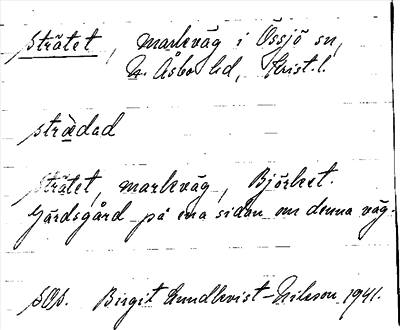 Strätet, markväg i Össjö sn,
N. Åsbo hd, Krist. l.
strædad
Strätet, markväg, Björket.
Gärdsgård på ena sidan om denna väg.
Birgit Lundkvist-Nilsson 1941.